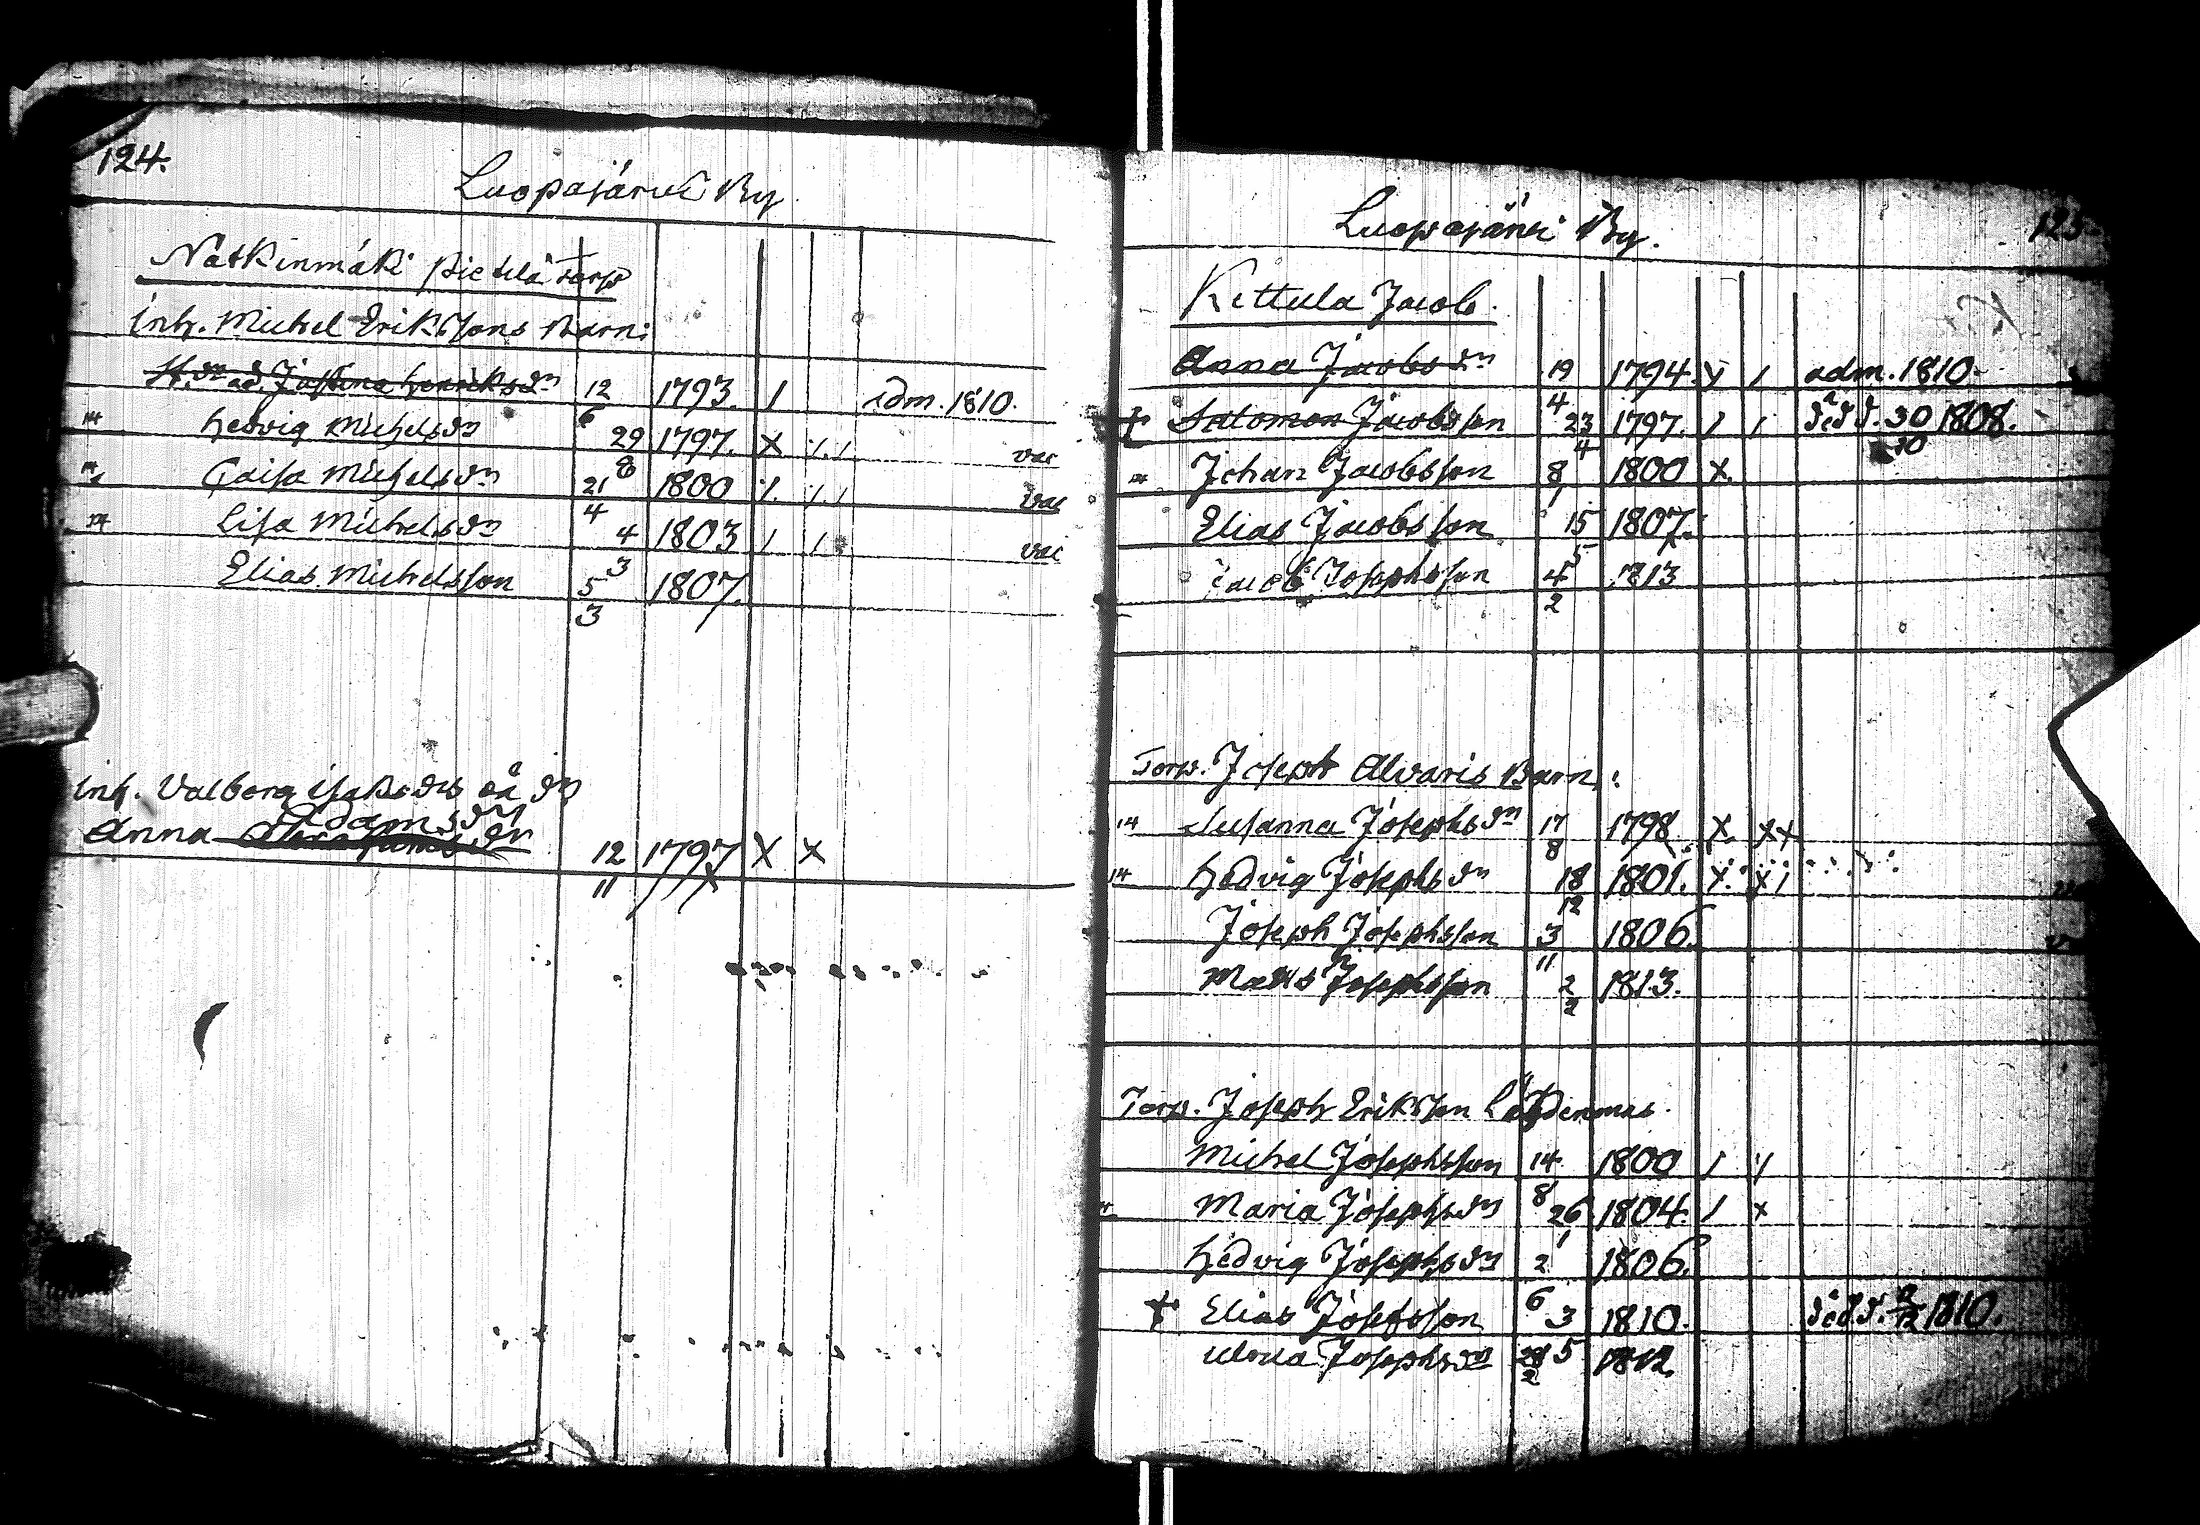 124.
Luopajärvi By
Natkinmäki Pietilä Torp
Inh. Michel Erikssons Barn:
Justina Henriksdn 12/6 1793. / adm. 1810.
Hedvig Michelsdn 29/8 1797. X / / vac
Caisa Michelsdn 21/4 1800 / / / vac
Lisa Michelsdn 4/3 1803 / / vac
Elias Michelsson 5/3 1807.
Inh. Valborg Isaksdrs oä dn
Adamsdn
Anna 12/11 1797 X X
125
Luopajärvi By.
Kittula Jacob.
Anna Jacobsdn 19/4 1794. X / adm. 1810.
† Salomon Jacobsson 23/4 1797. / / död d. 30/10 1808.
Johan Jacobsson 8/1 1800 X.
Elias Jacobsson 15/5 1807.
Jacob Josephsson 4/2 1813
Torp. Joseph Alvaris Barn:
14 Susanna Josephsdn 17/8 1798. X. X X
14 Hedvig Josephsdn 18/12 1801. X. X /
Joseph Josephsson 3/11 1806.
Matts Josephsson 2/2 1813.
Torp. Joseph Eriksson
Michel Josephsson 14/8 1800 / /
Maria Josephsdn 26/1 1804. / X
Hedvig Josephsdn 2/6 1806.
† Elias Josefsson 3/5 1810. död d. 1810.
Josephsdn 1812.